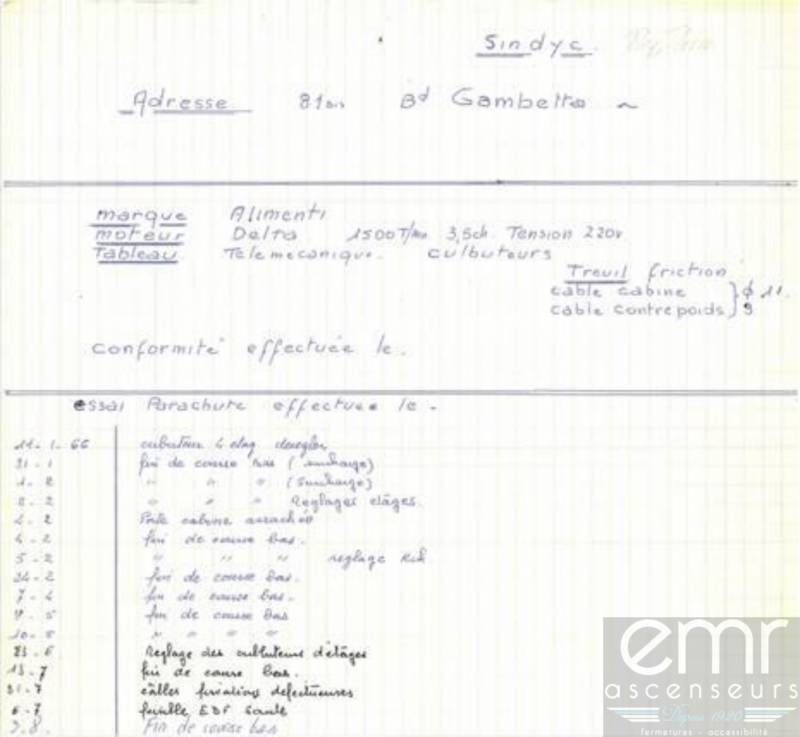 Sindyc.
Adresse 81 bis Bd Gambetta ~
marque Alimenti
moteur Delta 1500T/mn 3,5ch. Tension 220v
Tableau Telemecanique. culbuteurs
Treuil friction
cable cabine } ϕ 11.
cable contrepoids } 9
conformité effectuée le.
essai Parachute effectuée le.
11-1-66 culbuteur 4 etag deregler
31-1 fin de course bas (surcharge)
1-2 " " " (surcharge)
2-2 " " " Reglages etâges.
4-2 Porte cabine arrachée
4-2 fin de course bas.
5-2 " " " reglage
24-2 fin de course bas.
7-4 fin de course bas.
fin de course bas
10-5 " " " "
23-6 Reglage des culbuteurs d'etâges
13-7 fin de course bas.
31-7 câbles fixations defectueuses
6-7 fusible EDF sauté
3.8. Fin de course bas
emr
ascenseurs
Depuis 1920
fermetures - accessibilité